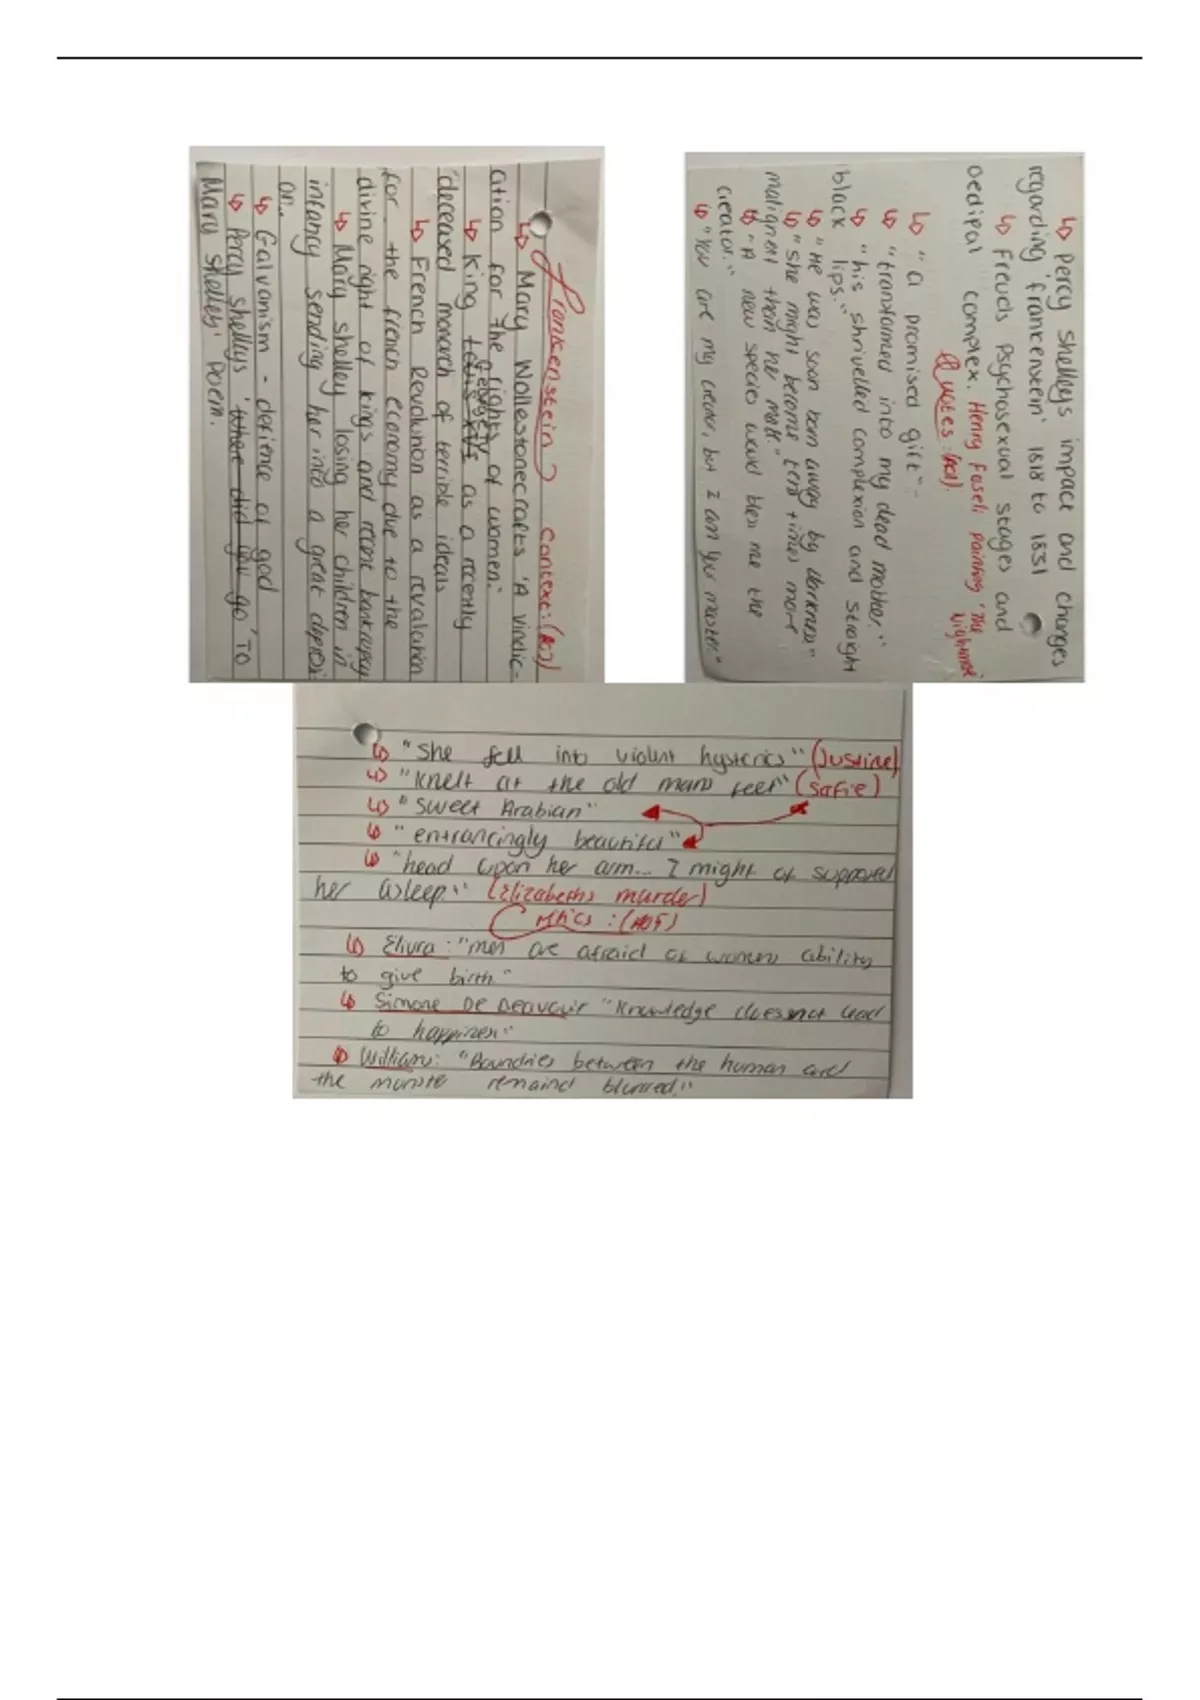 Frankenstein Context: (AO3)
↳ Mary Wollestonecrafts 'A Vindic-
ation for the rights of women.'
↳ King George IV as a recently
deceased monarch of terrible ideals
↳ French Revolution as a revalation
for the french economy due to the
divine right of kings and recent
↳ Mary shelley losing her children in
infancy sending her into a great depressi
on.
↳ Galvanism - defience of god
↳ Percy shelleys 'Where did you go' 'To
Mary Shelley' poem.
↳ Percy Shelleys impact and changes
regarding 'frankenstein' 1818 to 1831
↳ Freuds psychosexual stages and
oedipal complex. Henry Fuseli painting 'The Nightmare'
Quotes: (AO1).
↳ "a promised gift" -
↳ "transformed into my dead mother."
↳ "his shrivelled complexion and straight
black lips."
↳ "He was soon born away by darkness"
↳ "she might become ten times more
malignant than her mate."
↳ "A new species would bless me the
creator."
↳ "You are my creator, but I am your master."
↳ "She fell into violent hysterics" (Justine)
↳ "Knelt at the old mans feet" (Safie)
↳ "Sweet Arabian"
↳ "entrancingly beautiful"
↳ "head upon her arm... I might of supposed
her asleep." (Elizabeths murder)
Critics: (AO5)
↳ "men are afraid of womens ability
to give birth"
↳ Simone De Beauvoir "Knowledge doesnt lead
to happiness"
↳ Williams: "Boundries between the human and
the monster remaind blurred."